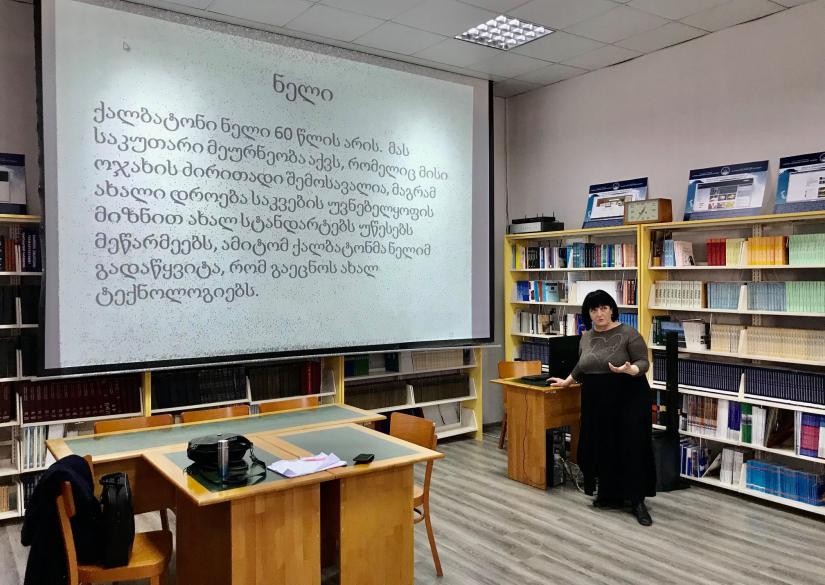 ნელი
ქალბატონი ნელი 60 წლის არის. მას
საკუთარი მეურნეობა აქვს, რომელიც მისი
ოჯახის ძირითადი შემოსავალია, მაგრამ
ახალი დროება საკვების უვნებელყოფის
მიზნით ახალ სტანდარტებს უწესებს
მეწარმეებს, ამიტომ ქალბატონმა ნელიმ
გადაწყვიტა, რომ გაეცნოს ახალ
ტექნოლოგიებს.